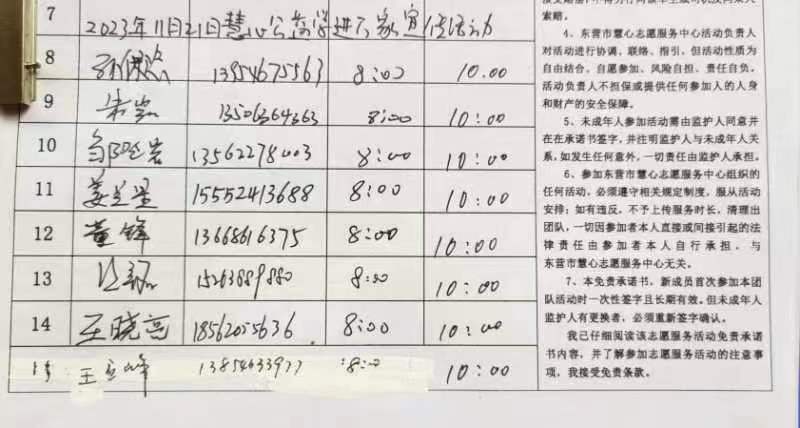 7 2023年11月21日慧心公益学进万家宣传活动
8 13954675563 8:00 10.00
9 13506364363 8:00 10:00
10 13562278003 8:00 10:00
11 姜兰星 15552413688 8:00 10:00
12 董锋 13668616375 8:00 10:00
13 15263889880 8:00 10:00
14 王晓亮 18562055636 8:00 10:00
15 王立峰 13854633977 8:00 10:00
索赔。
4、东营市慧心志愿服务中心活动负责人
对活动进行协调、联络、指引，但活动性质为
自由结合、自愿参加、风险自担、责任自负。
活动负责人不担保或提供任何参加人的人身
和财产的安全保障。
5、未成年人参加活动需由监护人同意并
在在承诺书签字，并注明监护人与未成年人关
系，如发生任何意外，一切责任由监护人承担。
6、参加东营市慧心志愿服务中心组织的
任何活动，必须遵守相关规定制度，服从活动
安排；如有违反，不予上传服务时长，清理出
团队，一切因参加者本人直接或间接引起的法
律责任由参加者本人自行承担，与
东营市慧心志愿服务中心无关。
7、本免责承诺书，新成员首次参加本团
队活动时一次性签字且长期有效。但未成年人
监护人有更换者，必须重新签字确认。
我已仔细阅读该志愿服务活动免责承诺
书内容，并了解参加志愿服务活动的注意事
项，我接受免责条款。